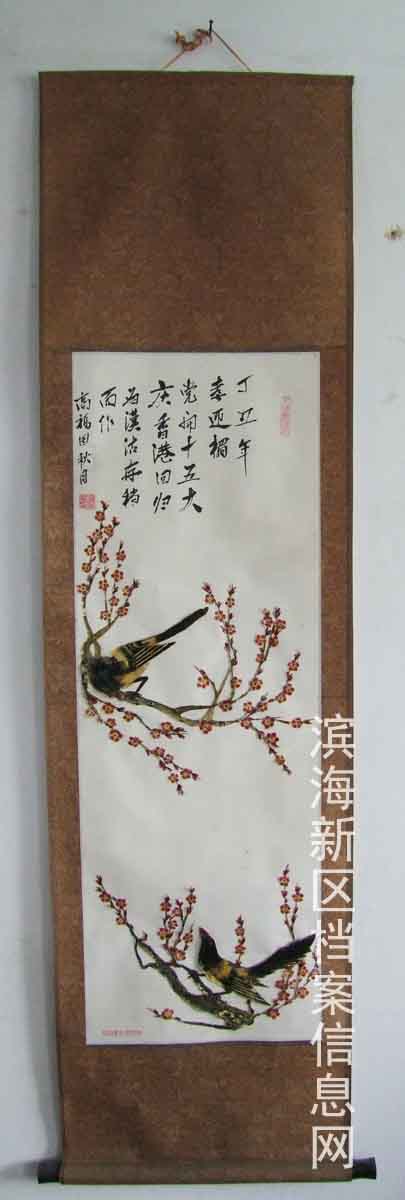 丁丑年
喜迎楣
党开十五大
庆香港回归
为汉沽存档
而作
高福田秋月
滨海新区档案信息网